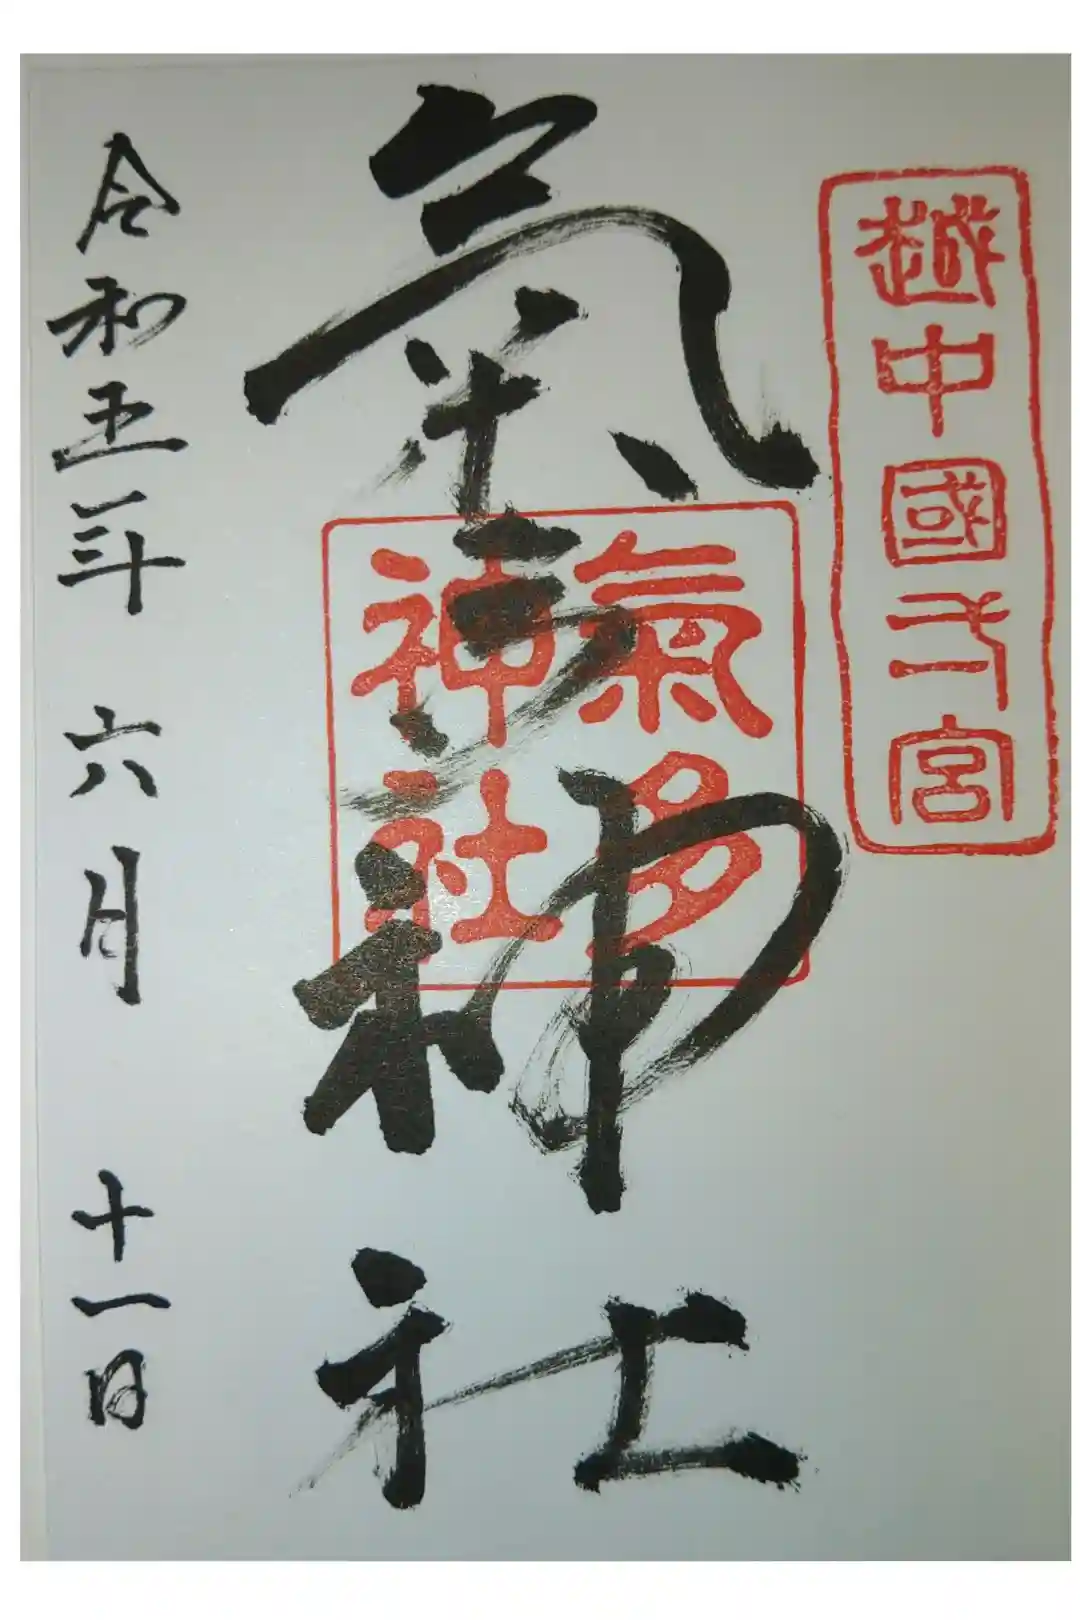 越中國一宮
氣多神社
氣多
神社
令和五年 六月 十一日